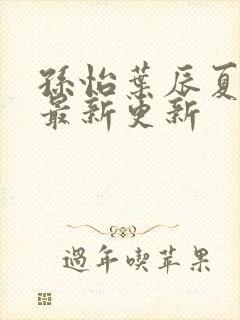 孫怡葉辰夏
最新更新
過年喫苹果